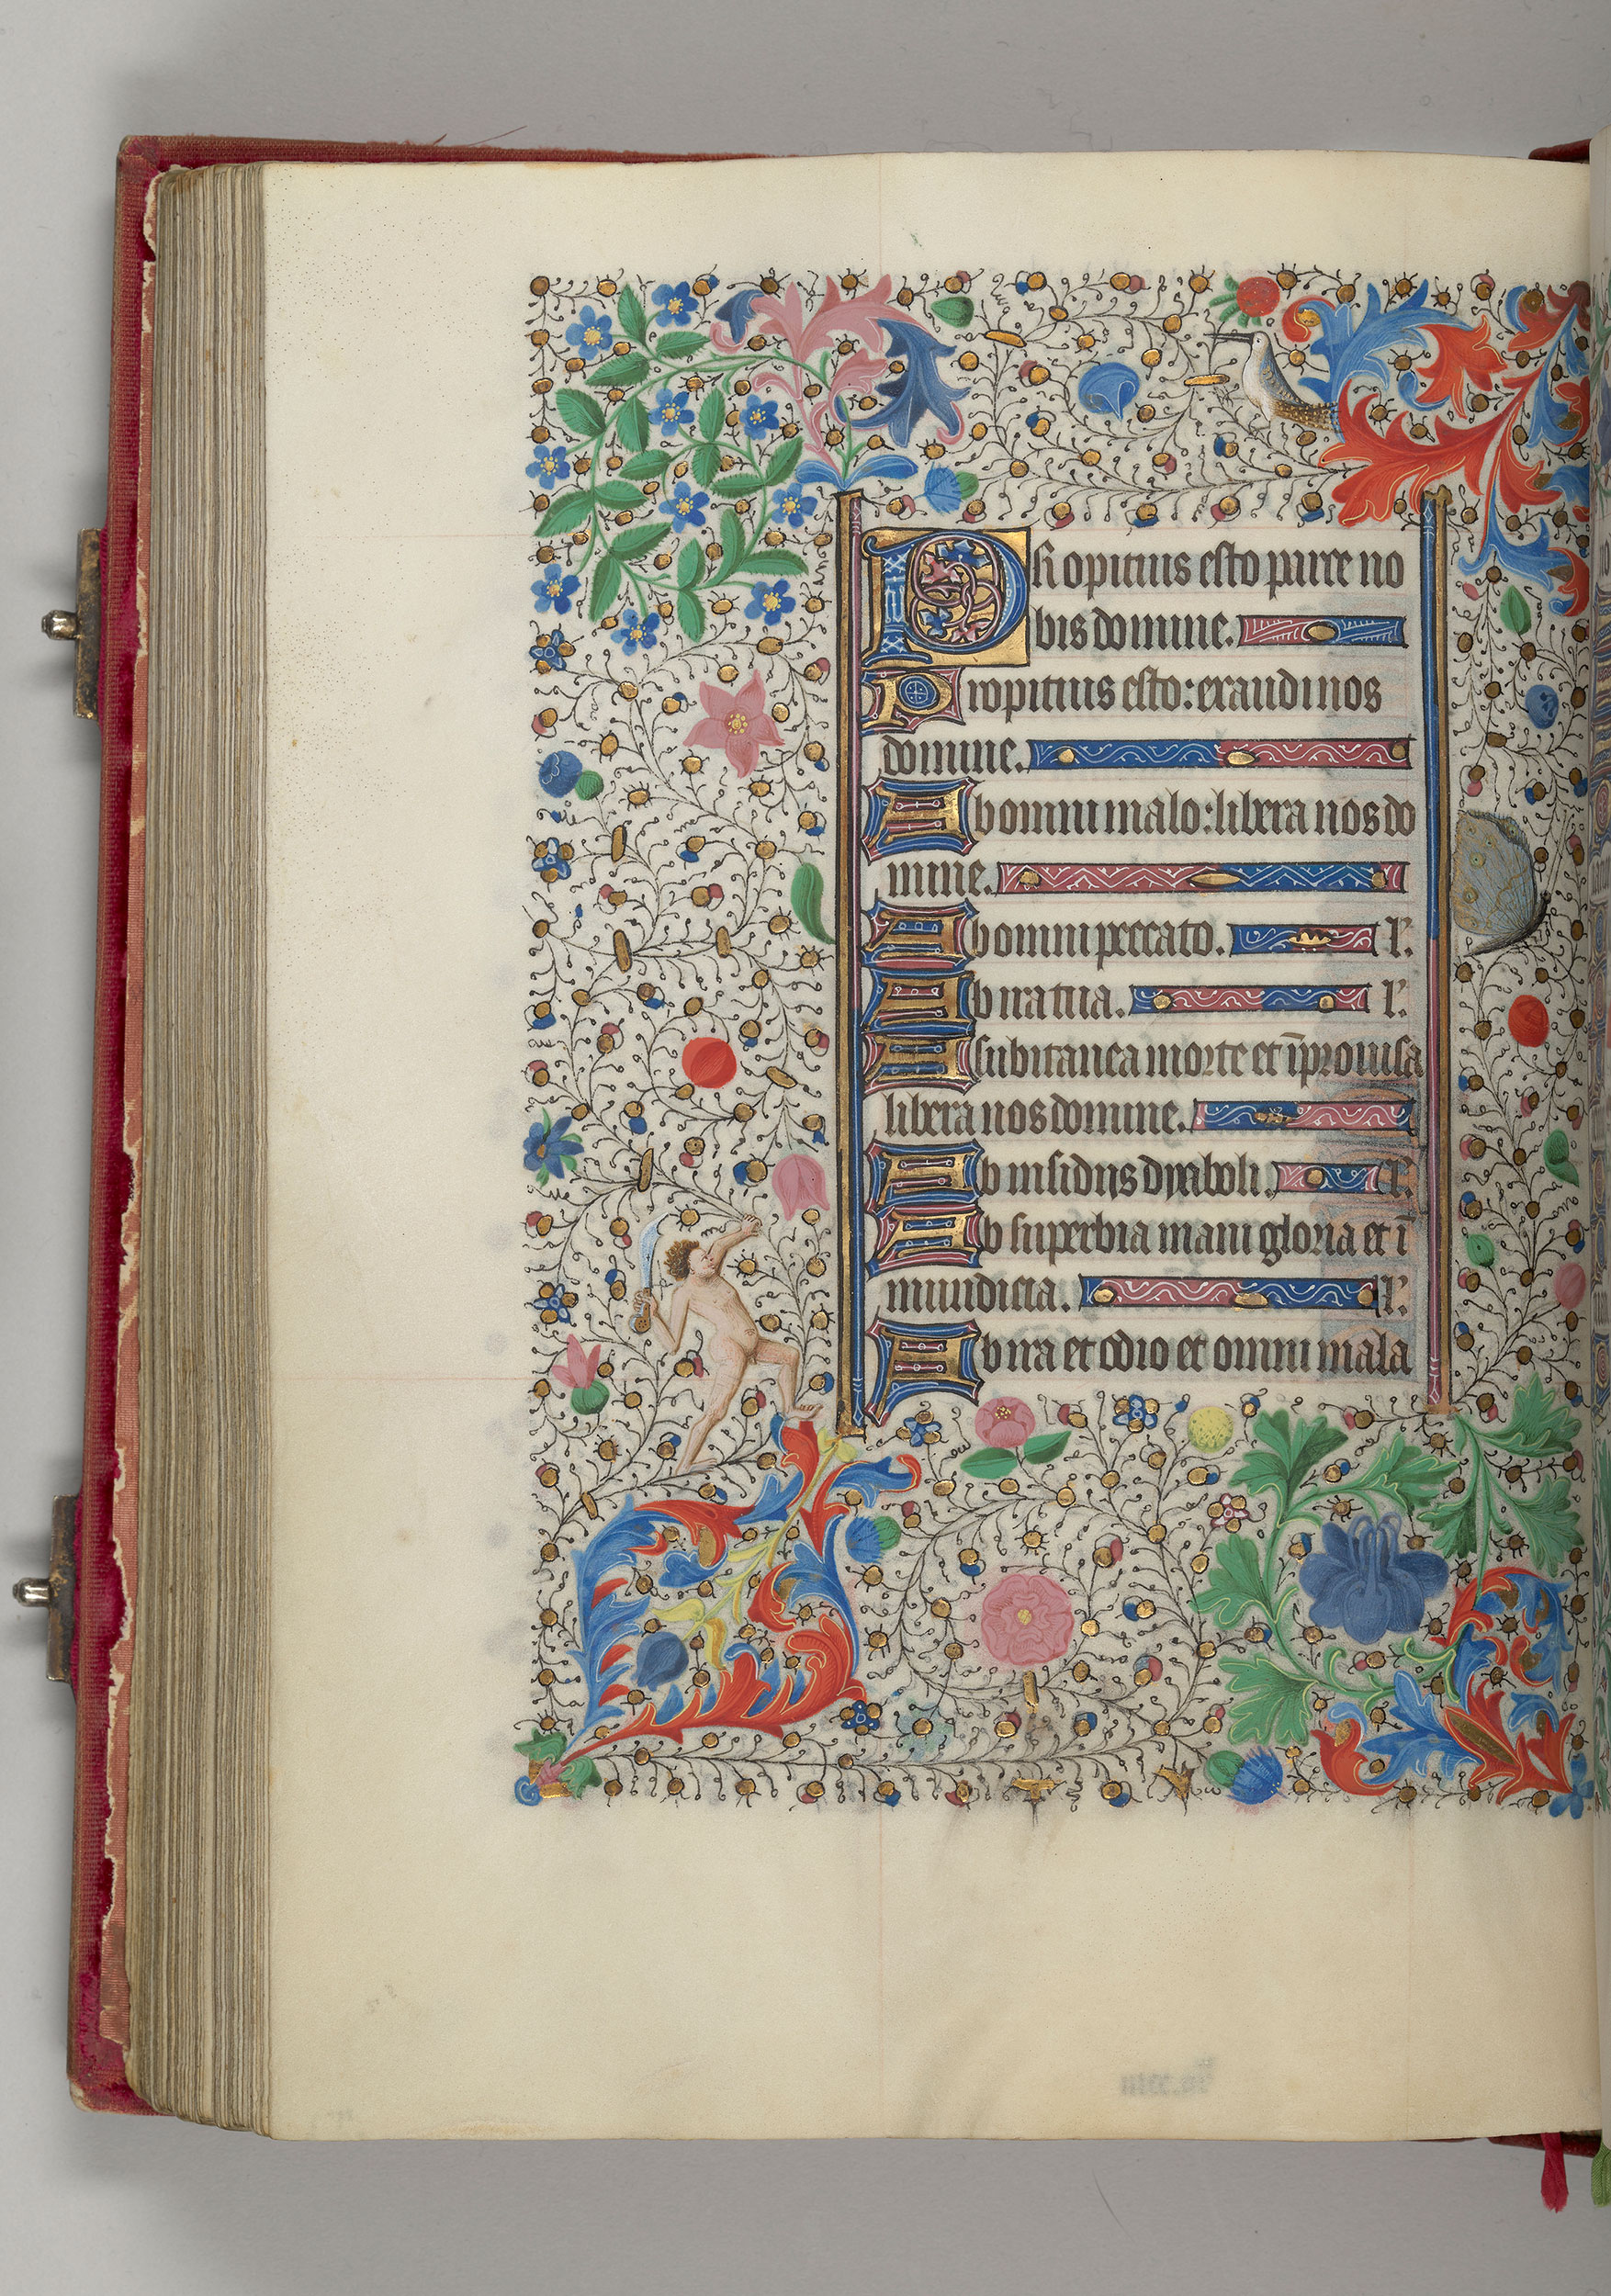 PRopicius esto parce no
bis domine.
Propicius esto: exaudi nos
domine.
Ab omni malo: libera nos do
mine.
Ab omni peccato. l'.
Ab ira tua. l'.
A subitanea morte et īprouisa
libera nos domine.
Ab insidiis dyaboli. l'.
Ab superbia inani gloria et ī
mundicia. l'.
Ab ira et odio et omni mala